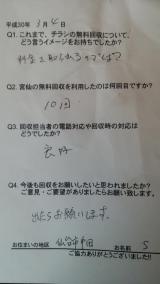 平成30年 3月 4日
Q1. これまで、チラシの無料回収について、
どう言うイメージをお持ちでしたか?
料金を取られるのでは?
Q2. 宮仙の無料回収を利用したのは何回目ですか?
10回
Q3. 回収担当者の電話対応や回収時の対応は
どうでしたか?
良好
Q4. 今後も回収をお願いしたいと思われましたか?
ご意見・ご要望がありましたらお願い致します。
出たらお願いします。
お住まいの地区 仙台市 お名前 S
ご協力ありがとうございました!!